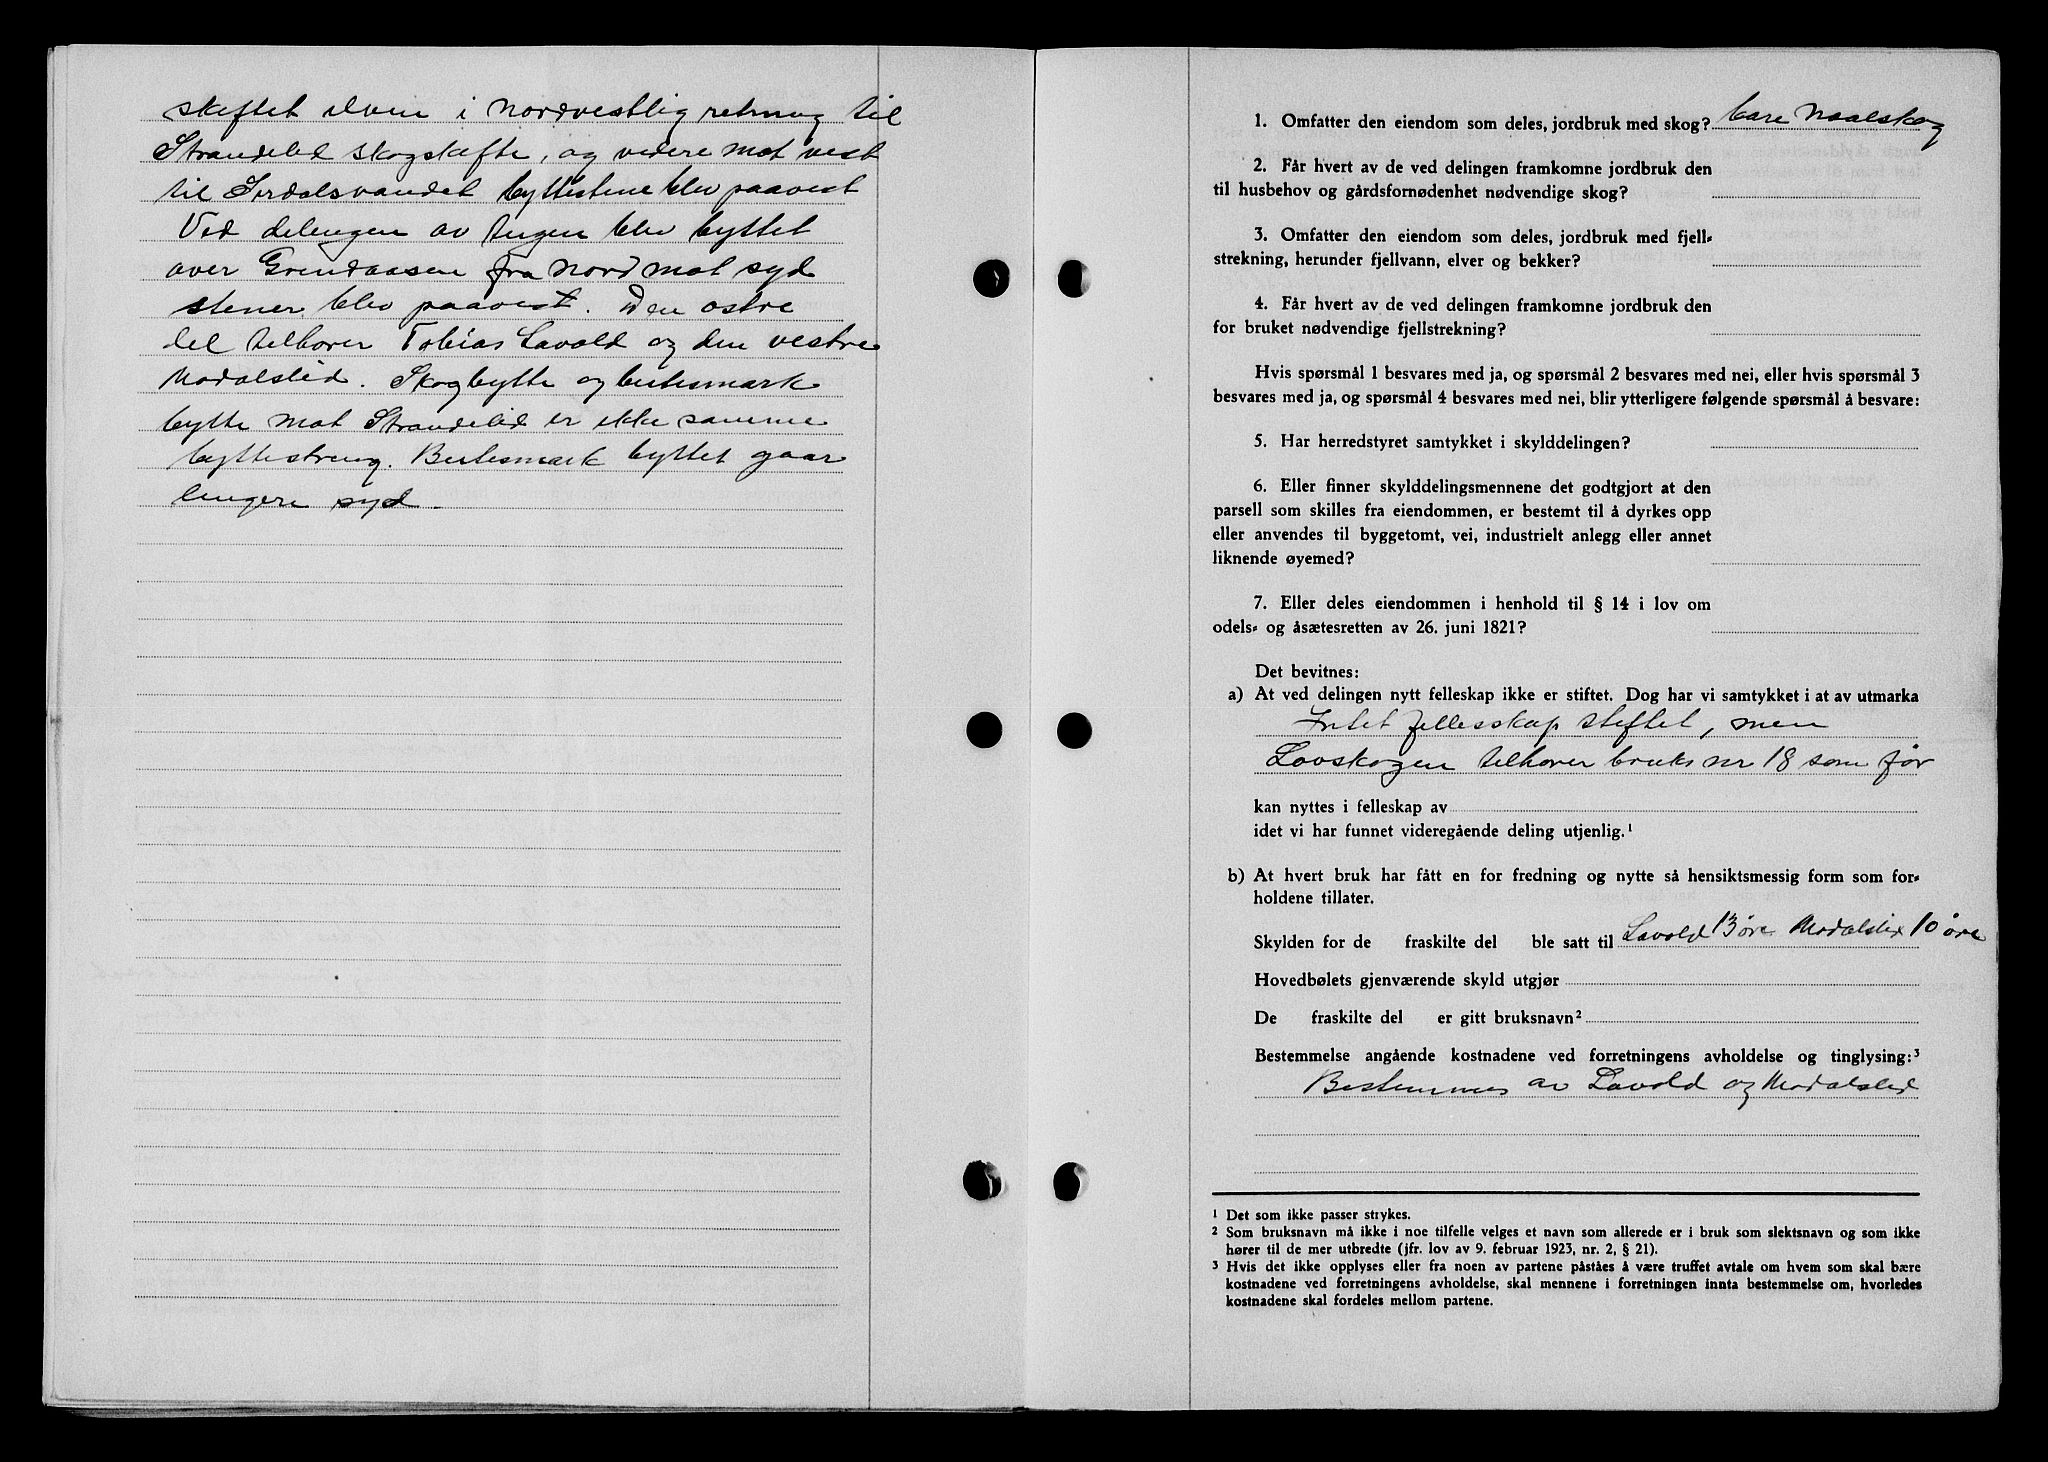 skeftet elven i nordvestlig retning til
Strandelid skogskefte, og videre mot vest
til Sirdalsvandet byttestene blev paavest
Ved delingen av teigen blev byttet
over Grendaasen fra nord mot syd
stener blev paavest. Den østre
del tilhører Tobias Lavold og den vestre
Modalslid. Skogbytte og beitesmark
bytte mot Strandelid er ikke samme
byttestreng. Beitesmark byttet gaar
lengere syd.
1. Omfatter den eiendom som deles, jordbruk med skog? bare Naalskog
2. Får hvert av de ved delingen framkomne jordbruk den
til husbehov og gårdsfornødenhet nødvendige skog?
3. Omfatter den eiendom som deles, jordbruk med fjell-
strekning, herunder fjellvann, elver og bekker?
4. Får hvert av de ved delingen framkomne jordbruk den
for bruket nødvendige fjellstrekning?
Hvis spørsmål 1 besvares med ja, og spørsmål 2 besvares med nei, eller hvis spørsmål 3
besvares med ja, og spørsmål 4 besvares med nei, blir ytterligere følgende spørsmål å besvare:
5. Har herredstyret samtykket i skylddelingen?
6. Eller finner skylddelingsmennene det godtgjort at den
parsell som skilles fra eiendommen, er bestemt til å dyrkes opp
eller anvendes til byggetomt, vei, industrielt anlegg eller annet
liknende øyemed?
7. Eller deles eiendommen i henhold til § 14 i lov om
odels- og åsætesretten av 26. juni 1821?
Det bevitnes:
a) At ved delingen nytt felleskap ikke er stiftet. Dog har vi samtykket i at av utmarka
Intet fellesskap stiftet, men
Lavskogen tilhører bruks nr 18 som før
kan nyttes i felleskap av
idet vi har funnet videregående deling utjenlig.¹
b) At hvert bruk har fått en for fredning og nytte så hensiktsmessig form som for-
holdene tillater.
Skylden for de fraskilte del ble satt til Lavold 13 øre Modalslid 10 øre
Hovedbølets gjenværende skyld utgjør
De fraskilte del er gitt bruksnavn²
Bestemmelse angående kostnadene ved forretningens avholdelse og tinglysing:³
Bestemmes av Lavold og Modalslid
¹ Det som ikke passer strykes.
² Som bruksnavn må ikke i noe tilfelle velges et navn som allerede er i bruk som slektsnavn og som ikke
hører til de mer utbredte (jfr. lov av 9. februar 1923, nr. 2, § 21).
³ Hvis det ikke opplyses eller fra noen av partene påståes å være truffet avtale om hvem som skal bære
kostnadene ved forretningens avholdelse, skal mennene i forretningen innta bestemmelse om, hvorledes
kostnadene skal fordeles mellom partene.